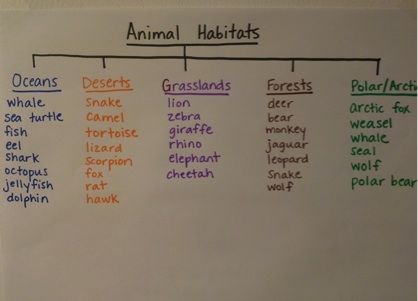 Animal Habitats
Oceans
whale
sea turtle
fish
eel
shark
octopus
jellyfish
dolphin
Deserts
snake
camel
tortoise
lizard
scorpion
fox
rat
hawk
Grasslands
lion
zebra
giraffe
rhino
elephant
cheetah
Forests
deer
bear
monkey
jaguar
leopard
snake
wolf
Polar/Arcti
arctic fox
weasel
whale
seal
wolf
polar bear